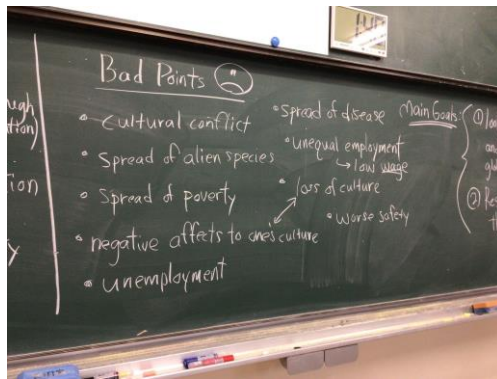 Bad Points
• Cultural conflict
• Spread of alien species
• Spread of poverty
• negative affects to one's culture
• unemployment
• Spread of disease
• unequal employment
→ low wage
• loss of culture
• worse safety
Main Goals:
①
②